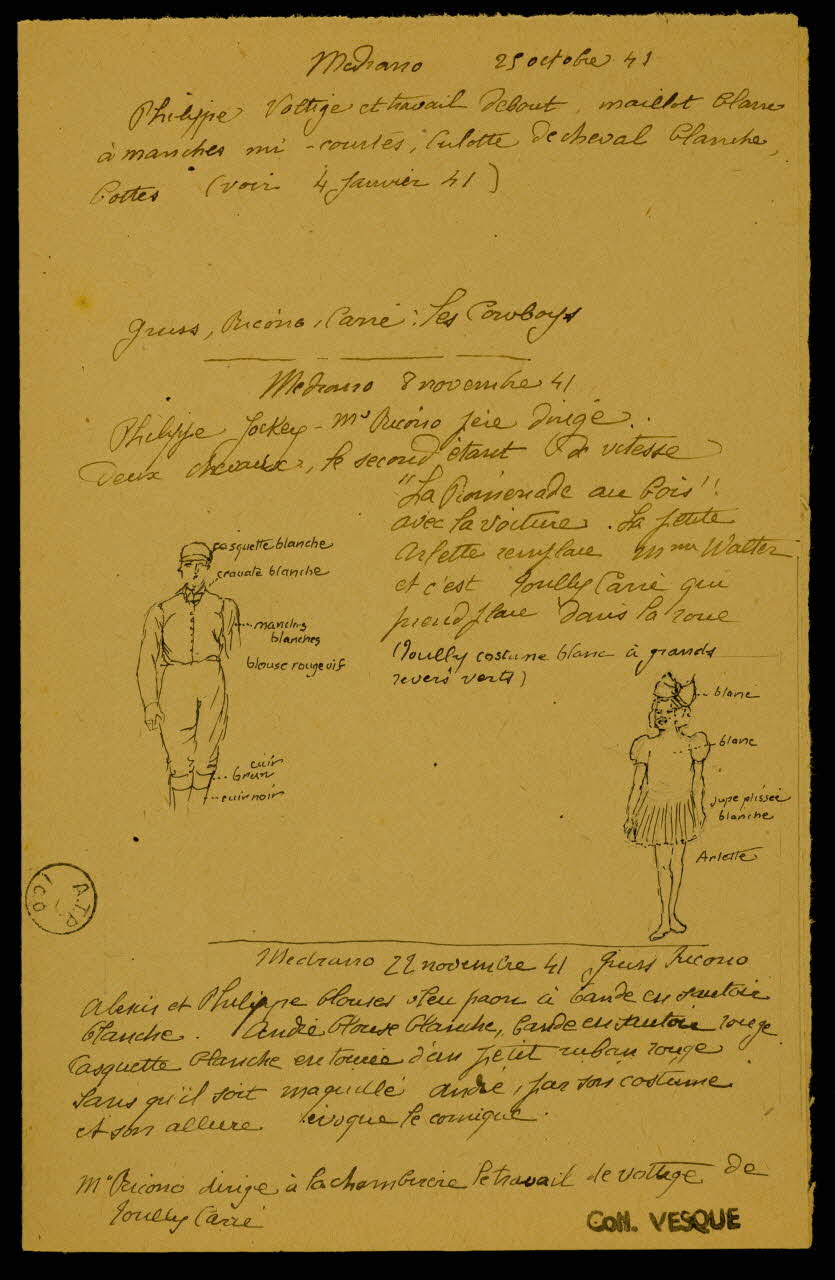 Medrano 25 octobre 41
Philippe Voltige et travail debout, maillot blanc
à manches mi-courtes, culotte de cheval blanche,
bottes (voir 4 Janvier 41)
Gruss, Ricono, Carré : les Cowboys
Medrano 8 novembre 41
Philippe Jockey - Mr Ricono père dirige..
Deux chevaux, le second étant de vitesse
"La Promenade au bois"
avec la voiture. La petite
Arlette remplace Mme Walter
et c'est Loully Carré qui
prend place dans la roue
(Loully costume blanc à grands
revers verts)
casquette blanche
cravate blanche
manches
blanches
blouse rouge vif
cuir
brun
cuir noir
blanc
blanc
jupe plissée
blanche
Arlette
A.T.P.
Medrano 22 novembre 41 Gruss Ricono
Alexis et Philippe blouses bleu paon à bande en sautoir
blanche. André blouse blanche, bande en sautoir rouge
Casquette blanche entourée d'un petit ruban rouge
Sans qu'il soit maquillé André, par son costume
et son allure évoque le comique.
Mr Ricono dirige à la chambrière le travail de voltige de
Loully Carré
Coll. VESQUE